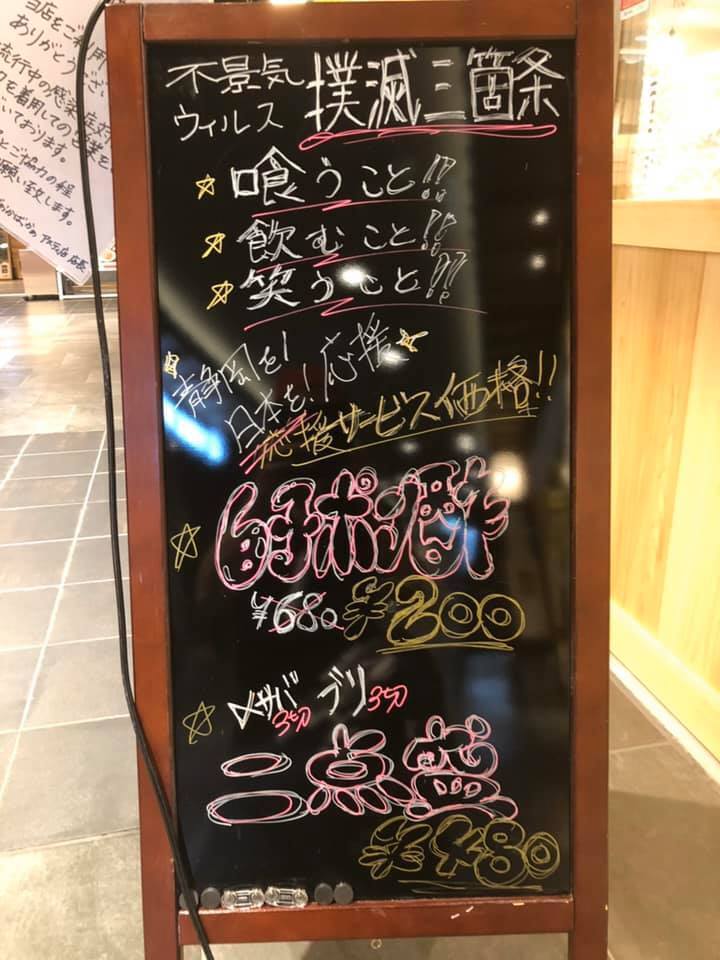 当店をご利用
ありがとうござい
流行中の感染症対
クを着用しての営業を
いております。
とご協力の程
願い致します。
店長
不景気
ウィルス 撲滅三箇条
☆ 喰うこと!!
☆ 飲むこと!!
☆ 笑うこと!!
静岡を!
日本を!応援☆
応援サービス価格!!
☆ 白子ポン酢
¥680 ¥200
〆サバ3切 ブリ3切
☆ 二点盛
¥480